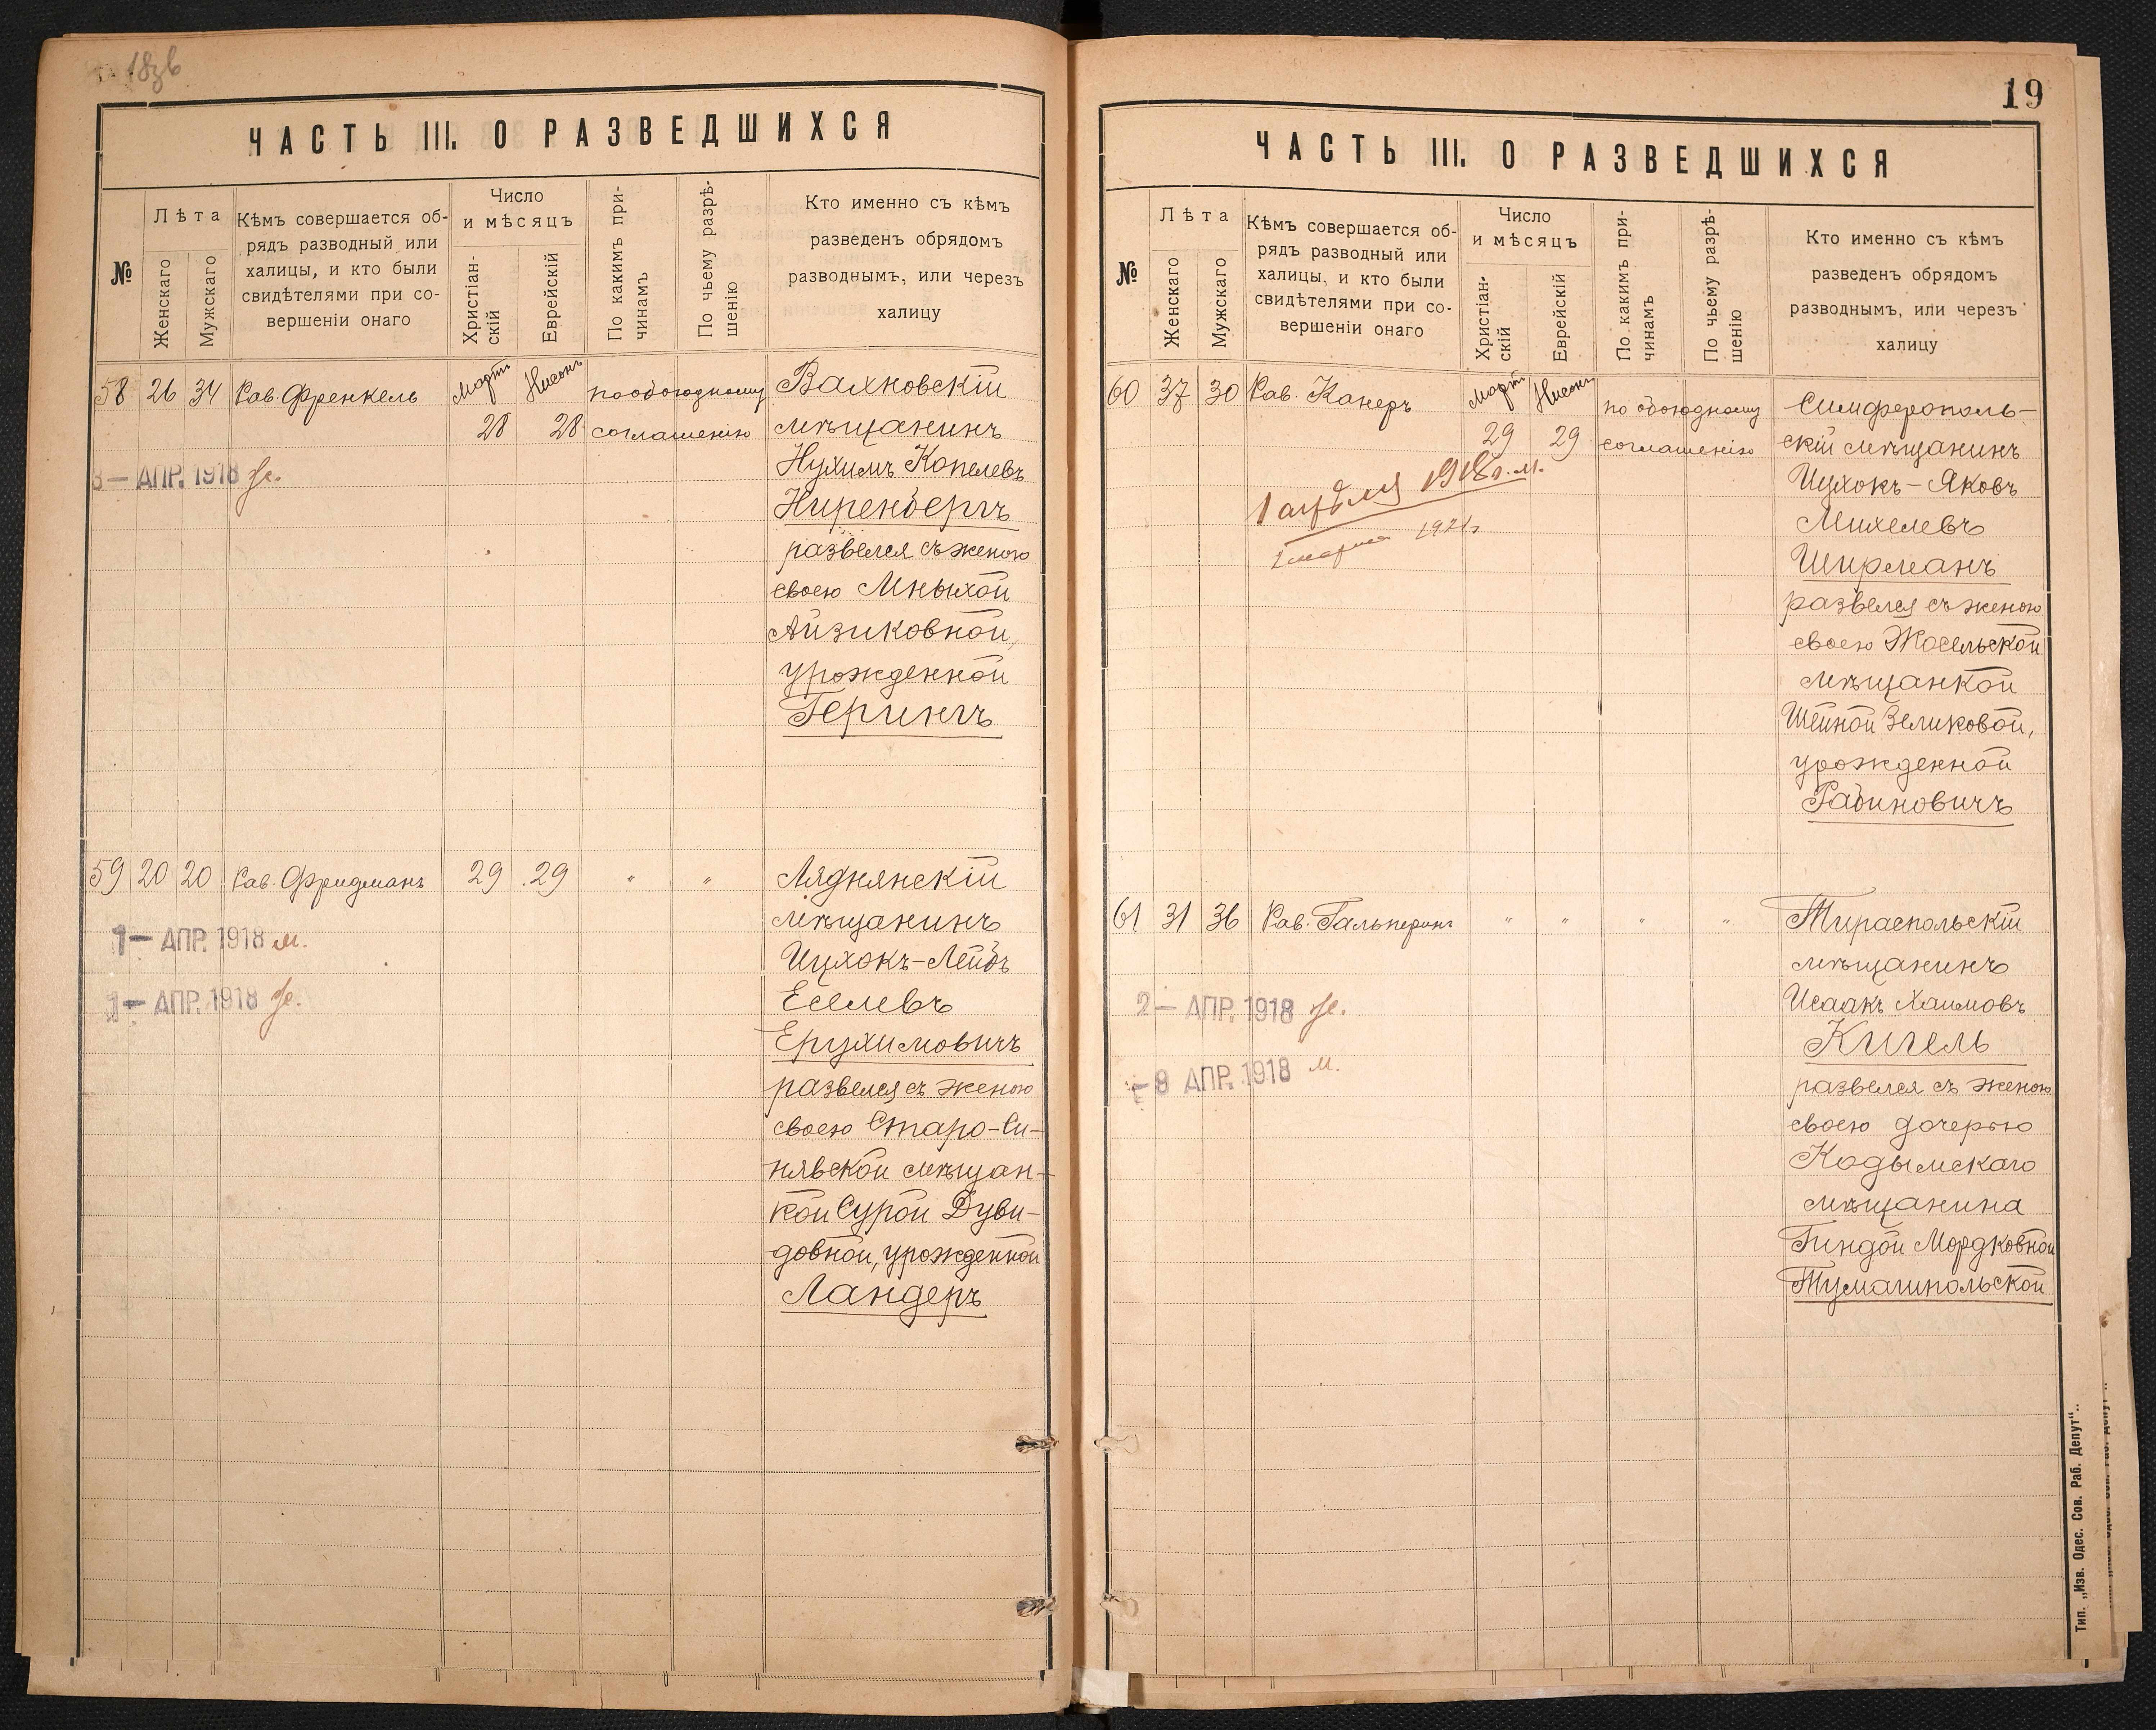 18зв
ЧАСТЬ III. О РАЗВЕДШИХСЯ
№
Лѣта
Женскаго
Мужскаго
Кѣмъ совершается об-
рядъ разводный или
халицы, и кто были
свидѣтелями при со-
вершеніи онаго
Число
и мѣсяцъ
Христіан-
скій
Еврейскій
По какимъ при-
чинамъ
По чьему разрѣ-
шенію
Кто именно съ кѣмъ
разведенъ обрядомъ
разводнымъ, или черезъ
халицу
58 26 34 Рав. Френкель Март 28 Нисонъ 28 по обоюдному
соглашенію
Вахновскій
мѣщанинъ
Нухимъ Копелевъ
Ниренбергъ
развелся съ женою
своею Мныхой
Айзиковной,
урожденной
Герингъ
3 — АПР. 1918 ж.
59 20 20 Рав. Фридманъ 29 29 " "
Ляднянскій
мѣщанинъ
Ицхокъ-Лейбъ
Еселевъ
Ерухимовичъ
развелся съ женою
своею Старо-Си-
нявской мѣщан-
кой Сурой Дуви-
довной, урожденной
Ландеръ
1 — АПР. 1918 м.
1 — АПР. 1918 ж.
19
ЧАСТЬ III. О РАЗВЕДШИХСЯ
№
Лѣта
Женскаго
Мужскаго
Кѣмъ совершается об-
рядъ разводный или
халицы, и кто были
свидѣтелями при со-
вершеніи онаго
Число
и мѣсяцъ
Христіан-
скій
Еврейскій
По какимъ при-
чинамъ
По чьему разрѣ-
шенію
Кто именно съ кѣмъ
разведенъ обрядомъ
разводнымъ, или черезъ
халицу
60 37 30 Рав. Канеръ Март 29 Нисонъ 29 по обоюдному
соглашенію
Симферополь-
скій мѣщанинъ
Ицхокъ-Яковъ
Михелевъ
Ширманъ
развелся съ женою
своею Жосельской
мѣщанкой
Шейной Зеликовой,
урожденной
Рабиновичъ
1 апрѣля 1918 г. м.
1 марта 1921 г
61 31 36 Рав. Гальперинъ " " " "
Тираспольскій
мѣщанинъ
Исаакъ Хаимовъ
Кигель
развелся съ женою
своею дочерью
Кодымскаго
мѣщанина
Гиндой Мордковной
Тумашпольской
2 — АПР. 1918 ж.
— 8 АПР. 1918 м.
Тип. „Изв. Одес. Сов. Раб. Депут“.